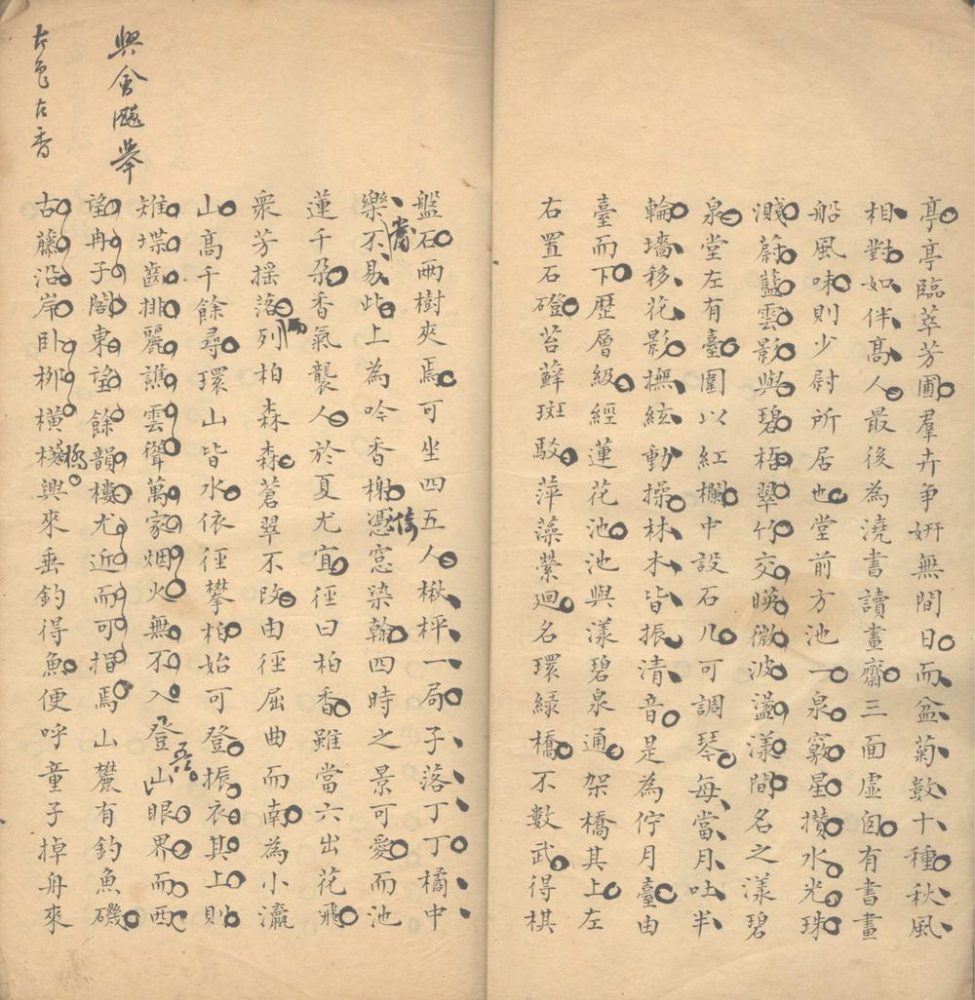 亭亭臨萃芳圃羣卉爭妍無間日而盆菊數十種秋風
相對如伴高人最後為澆書讀畫齋三面虛囱有書畫
船風味則少尉所居也堂前方池一泉竅星攢水光珠
濺蔚藍雲影與碧梧翠竹交暎微波盪漾間名之漾碧
泉堂左有臺圍以紅欄中設石几可調琴每當月吐半
輪墻移花影撫絃動操林木皆振清音是為佇月臺由
臺而下歷層級經蓮花池池與漾碧泉通架橋其上左
右置石磴苔蘚斑駁萍藻縈迴名環綠橋不數武得棋
盤石兩樹夾焉可坐四五人楸枰一局子落丁丁橘中
樂不易此上為吟香榭憑窓染翰四時之景可愛而池
當
倚
蓮千朶香氣襲人於夏尤宜徑曰柏香雖當六出花飛
衆芳搖落列柏森森蒼翠不改由徑屈曲而南為小瀛
山高千餘尋環山皆水依徑攀柏始可登振衣其上則
雉堞齒排麗譙雲聳萬家烟火無不入登山眼界而西
吾
望冉子閣東望餘韻樓尤近而可揖焉山麓有釣魚磯
古藤沿岸臥柳橫橋興來垂釣得魚便呼童子掉舟來
橋
興會飈舉
古色古香